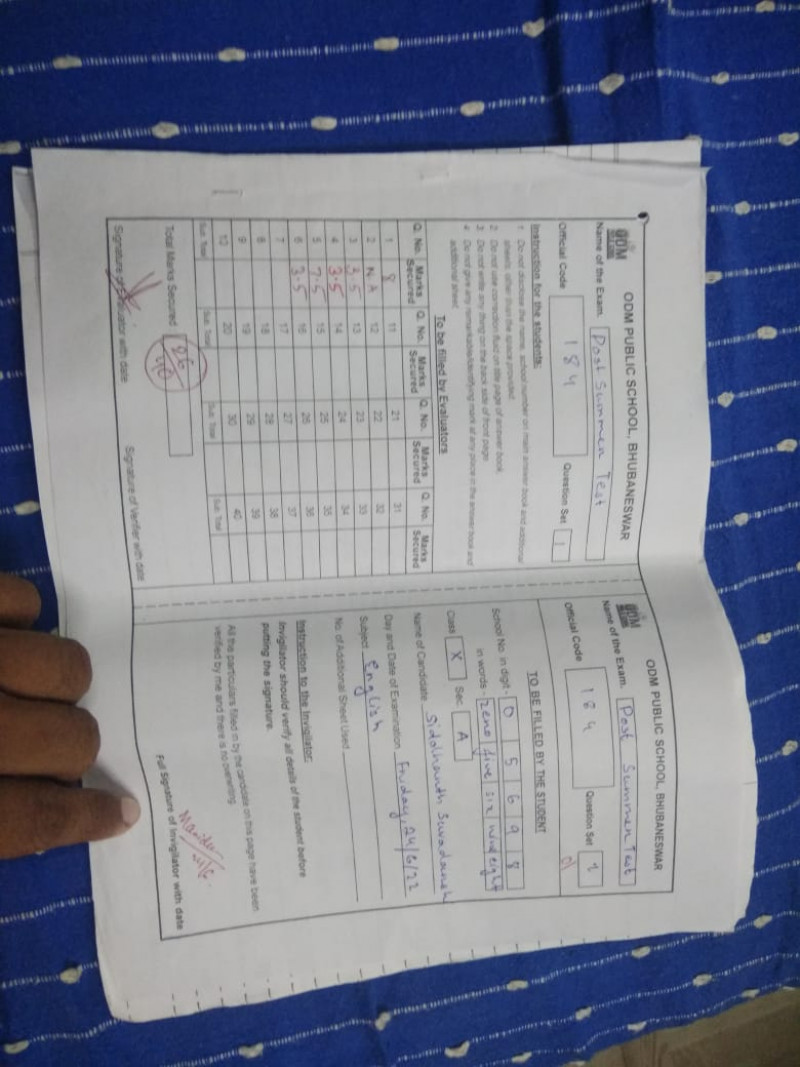 ODM PUBLIC SCHOOL, BHUBANESWAR
ODM
Name of the Exam. Post Summer Test
Official Code 184 Question Set 1
Instruction for the students:
1. Do not disclose the name, school number on main answer book and additional
sheets other than the space provided.
2. Do not use correction fluid on title page of answer book.
3. Do not write any thing on the back side of front page.
4. Do not give any remarkable/identifying mark at any place in the answer book and
additional sheet.
To be filled by Evaluators
Q. No. Marks Secured Q. No. Marks Secured Q. No. Marks Secured Q. No. Marks Secured
1 8 11 21 31
2 NA 12 22 32
3 3.5 13 23 33
4 3.5 14 24 34
5 7.5 15 25 35
6 3.5 16 26 36
7 17 27 37
8 18 28 38
9 19 29 39
10 20 30 40
Sub. Total Sub. Total Sub. Total Sub. Total
Total Marks Secured 26/40
Signature of Evaluator with date Signature of Verifier with date
ODM PUBLIC SCHOOL, BHUBANESWAR
ODM
Name of the Exam. Post Summer Test
Official Code 184 Question Set 1
01
TO BE FILLED BY THE STUDENT
School No. in digit - 0 5 6 9 8
in words - zero/five/six/nine/eight
Class X Sec. A
Name of Candidate Siddhanth
Day and Date of Examination Friday, 24/6/22
Subject English
No. of Additional Sheet Used
Instruction to the Invigilator:
Invigilator should verify all details of the student before
putting the signature.
All the particulars filled in by the candidate on this page have been
verified by me and there is no overwriting.
Full Signature of Invigilator with date